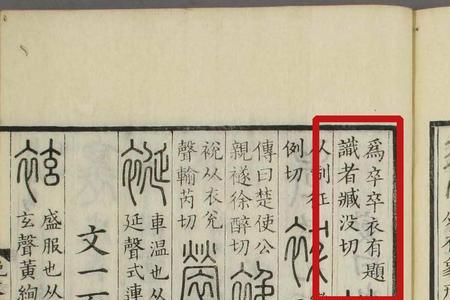 爲卒卒衣有題
識者臧没切
从制征
例切
傳曰楚使公
親襚徐醉切
裞从衣兊
聲輸芮切
車温也从
延聲式連
文一百
袨
盛服也从
玄聲黄絢